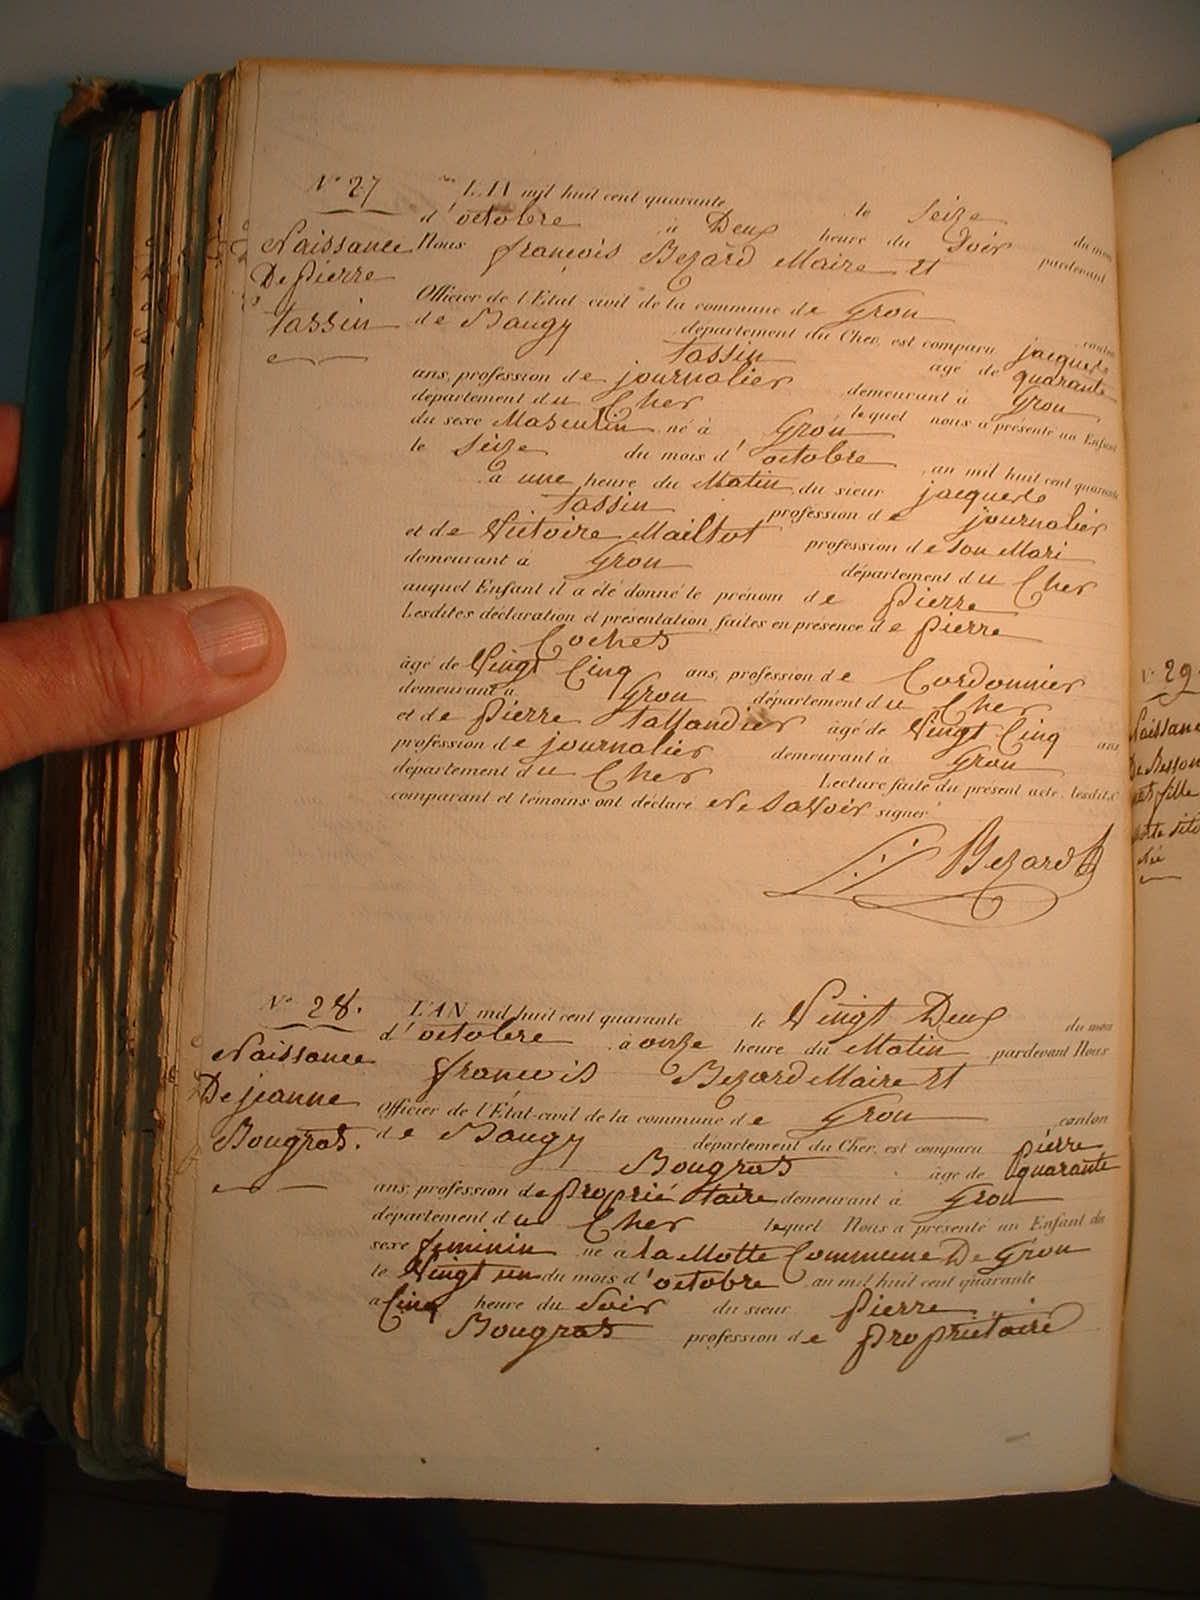 N° 27
Naissance
De pierre
tassin
L'AN mil huit cent quarante le Seize du mois
d'octobre à Deux heure du Soir pardevant
Nous françois Bezard Maire Et
Officier de l'État-civil de la commune de Gron canton
de Baugy département du Cher, est comparu jacques
tassin âgé de quarante
ans, profession de journalier demeurant à Gron
département du Cher lequel nous a présenté un Enfant
du sexe Masculin né à Gron
le Seize du mois d'octobre an mil huit cent quarante
à une heure du Matin du sieur jacques
tassin profession de journalier
et de Victoire Mailtot profession de son Mari
demeurant à Gron département du Cher
auquel Enfant il a été donné le prénom de pierre
Lesdites déclaration et présentation faites en présence de pierre
Cochet
âgé de Vingt Cinq ans, profession de Cordonnier
demeurant à Gron département du Cher
et de pierre tallandier âgé de Vingt Cinq ans
profession de journalier demeurant à Gron
département du Cher Lecture faite du présent acte, lesdits
comparant et témoins ont déclaré ne Savoir signer
Bezard
N° 28.
Naissance
De jeanne
Bougrat.
L'AN mil huit cent quarante le Vingt Deux du mois
d'octobre à onze heure du Matin pardevant Nous
françois Bezard Maire Et
Officier de l'État-civil de la commune de Gron canton
de Baugy département du Cher, est comparu pierre
Bougrat âgé de quarante
ans, profession de propriétaire demeurant à Gron
département du Cher lequel Nous a présenté un Enfant du
sexe feminin né à la Motte Commune De Gron
le Vingt un du mois d'octobre an mil huit cent quarante
à Cinq heure du Soir du sieur pierre
Bougrat profession de propriétaire
N° 29.
fille
Née